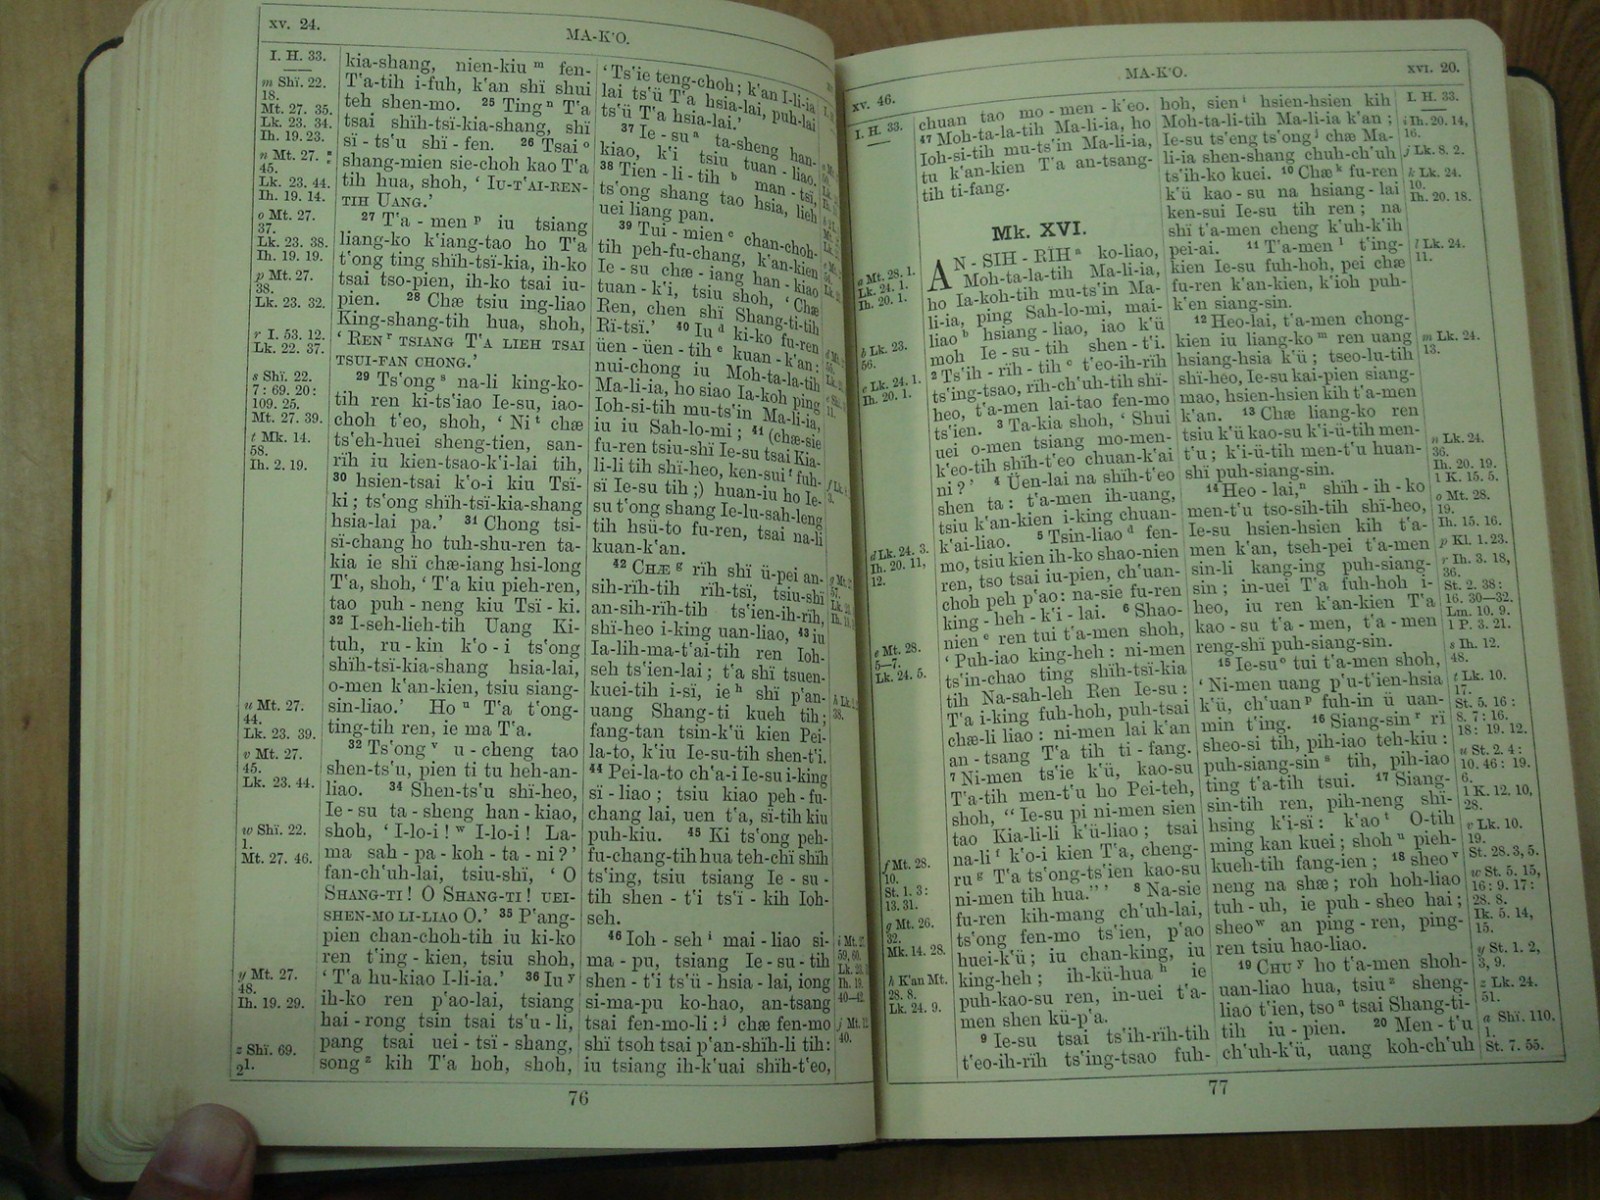 xv. 24.
MA-K'O.
I. H. 33.
m Shï. 22.
18.
Mt. 27. 35.
Lk. 23. 34.
Ih. 19. 23.
n Mt. 27.
45.
Lk. 23. 44.
Ih. 19. 14.
o Mt. 27.
37.
Lk. 23. 38.
Ih. 19. 19.
p Mt. 27.
38.
Lk. 23. 32.
r I. 53. 12.
Lk. 22. 37.
s Shï. 22.
7 : 69. 20 :
109. 25.
Mt. 27. 39.
t Mk. 14.
58.
Ih. 2. 19.
u Mt. 27.
44.
Lk. 23. 39.
v Mt. 27.
45.
Lk. 23. 44.
w Shï. 22.
1.
Mt. 27. 46.
y Mt. 27.
48.
Ih. 19. 29.
z Shï. 69.
21.
kia-shang, nien-kiu m fen-
T'a-tih i-fuh, k'an shï shui
teh shen-mo. 25 Ting n T'a
tsai shïh-tsï-kia-shang, shï
sï - ts'u shi - fen. 26 Tsai o
shang-mien sie-choh kao T'a
tih hua, shoh, ‘ IU-T'AI-REN-
TIH UANG.’
27 T'a - men p iu tsiang
liang-ko k'iang-tao ho T'a
t'ong ting shïh-tsï-kia, ih-ko
tsai tso-pien, ih-ko tsai iu-
pien. 28 Chæ tsiu ing-liao
King-shang-tih hua, shoh,
‘ REN r TSIANG T'A LIEH TSAI
TSUI-FAN CHONG.’
29 Ts'ong s na-li king-ko-
tih ren ki-ts'iao Ie-su, iao-
choh t'eo, shoh, ‘ Ni t chæ
ts'eh-huei sheng-tien, san-
rïh iu kien-tsao-k'i-lai tih,
30 hsien-tsai k'o-i kiu Tsï-
ki ; ts'ong shïh-tsï-kia-shang
hsia-lai pa.’ 31 Chong tsi-
sï-chang ho tuh-shu-ren ta-
kia ie shï chæ-iang hsi-long
T'a, shoh, ‘ T'a kiu pieh-ren,
tao puh - neng kiu Tsï - ki.
32 I-seh-lieh-tih Uang Ki-
tuh, ru - kin k'o - i ts'ong
shïh-tsï-kia-shang hsia-lai,
o-men k'an-kien, tsiu siang-
sin-liao.’ Ho u T'a t'ong-
ting-tih ren, ie ma T'a.
32 Ts'ong v u - cheng tao
shen-ts'u, pien ti tu heh-an-
liao. 34 Shen-ts'u shï-heo,
Ie - su ta - sheng han - kiao,
shoh, ‘ I-lo-i ! w I-lo-i ! La-
ma sah - pa - koh - ta - ni ? ’
fan-ch'uh-lai, tsiu-shï, ‘ O
SHANG-TI ! O SHANG-TI ! UEI-
SHEN-MO LI-LIAO O.’ 35 P'ang-
pien chan-choh-tih iu ki-ko
ren t'ing - kien, tsiu shoh,
‘ T'a hu-kiao I-li-ia.’ 36 Iu y
ih-ko ren p'ao-lai, tsiang
hai - rong tsin tsai ts'u - li,
pang tsai uei - tsï - shang,
song z kih T'a hoh, shoh,
‘Ts'ie teng-choh ; k'an I-li-ia
lai ts'ü T'a hsia-lai, puh-lai
ts'ü T'a hsia-lai.’
37 Ie - su a ta-sheng han-
kiao, k'i tsiu tuan - liao.
38 Tien - li - tih b man - tsï,
ts'ong shang tao hsia, lieh
uei liang pan.
39 Tui - mien c chan-choh-
tih peh-fu-chang, k'an-kien
Ie - su chæ - iang han - kiao
tuan - k'i, tsiu shoh, ‘ Chæ
Ren, chen shï Shang-ti-tih
Rï-tsï.’ 40 Iu d ki-ko fu-ren
üen - üen - tih e kuan - k'an :
nui-chong iu Moh-ta-la-tih
Ma-li-ia, ho siao Ia-koh ping
Ioh-si-tih mu-ts'in Ma-li-ia,
iu iu Sah-lo-mi ; 41 (chæ-sie
fu-ren tsiu-shï Ie-su tsai Kia-
li-li tih shï-heo, ken-sui f fuh-
sï Ie-su tih ;) huan-iu ho Ie-
su t'ong shang Ie-lu-sah-leng
tih hsü-to fu-ren, tsai na-li
kuan-k'an.
42 CHÆ g rïh shï ü-pei an-
sih-rïh-tih rïh-tsï, tsiu-shï
an-sih-rïh-tih ts'ien-ih-rïh,
shï-heo i-king uan-liao, 43 iu
Ia-lih-ma-t'ai-tih ren Ioh-
seh ts'ien-lai ; t'a shï tsuen-
kuei-tih i-sï, ie h shï p'an-
uang Shang-ti kueh tih ;
fang-tan tsin-k'ü kien Pei-
la-to, k'iu Ie-su-tih shen-t'i.
44 Pei-la-to ch'a-i Ie-su i-king
sï - liao ; tsiu kiao peh - fu-
chang lai, uen t'a, sï-tih kiu
puh-kiu. 45 Ki ts'ong peh-
fu-chang-tih hua teh-chï shïh
ts'ing, tsiu tsiang Ie - su -
tih shen - t'i ts'ï - kih Ioh-
seh.
46 Ioh - seh i mai - liao si-
ma - pu, tsiang Ie - su - tih
shen - t'i ts'ü - hsia - lai, iong
si-ma-pu ko-hao, an-tsang
tsai fen-mo-li : j chæ fen-mo
shï tsoh tsai p'an-shïh-li tih :
iu tsiang ih-k'uai shïh-t'eo,
76
xv. 46.
MA-K'O.
xvi. 20.
I. H. 33.
a Mt. 28. 1.
Lk. 24. 1.
Ih. 20. 1.
b Lk. 23.
56.
c Lk. 24. 1.
Ih. 20. 1.
d Lk. 24. 3.
Ih. 20. 11,
12.
e Mt. 28.
5—7.
Lk. 24. 5.
f Mt. 28.
10.
St. 1. 3 :
13. 31.
g Mt. 26.
32.
Mk. 14. 28.
h K'an Mt.
28. 8.
Lk. 24. 9.
chuan tao mo - men - k'eo.
47 Moh-ta-la-tih Ma-li-ia, ho
Ioh-si-tih mu-ts'in Ma-li-ia,
tu k'an-kien T'a an-tsang-
tih ti-fang.
Mk. XVI.
AN - SIH - RÏH a ko-liao,
Moh-ta-la-tih Ma-li-ia,
ho Ia-koh-tih mu-ts'in Ma-
li-ia, ping Sah-lo-mi, mai-
liao b hsiang - liao, iao k'ü
moh Ie - su - tih shen - t'i.
2 Ts'ih - rïh - tih c t'eo-ih-rïh
ts'ing-tsao, rïh-ch'uh-tih shï-
heo, t'a-men lai-tao fen-mo
ts'ien. 3 Ta-kia shoh, ‘ Shui
uei o-men tsiang mo-men-
k'eo-tih shïh-t'eo chuan-k'ai
ni ? ’ 4 Üen-lai na shïh-t'eo
shen ta : t'a-men ih-uang,
tsiu k'an-kien i-king chuan-
k'ai-liao. 5 Tsin-liao d fen-
mo, tsiu kien ih-ko shao-nien
ren, tso tsai iu-pien, ch'uan-
choh peh p'ao : na-sie fu-ren
king - heh - k'i - lai. 6 Shao-
nien e ren tui t'a-men shoh,
‘ Puh-iao king-heh : ni-men
ts'in-chao ting shïh-tsï-kia
tih Na-sah-leh Ren Ie-su :
T'a i-king fuh-hoh, puh-tsai
chæ-li liao : ni-men lai k'an
an - tsang T'a tih ti - fang.
7 Ni-men ts'ie k'ü, kao-su
T'a-tih men-t'u ho Pei-teh,
shoh, “ Ie-su pi ni-men sien
tao Kia-li-li k'ü-liao ; tsai
na-li f k'o-i kien T'a, cheng-
ru g T'a ts'ong-ts'ien kao-su
ni-men tih hua.” ’ 8 Na-sie
fu-ren kih-mang ch'uh-lai,
ts'ong fen-mo ts'ien, p'ao
huei-k'ü ; iu chan-king, iu
king-heh ; ih-kü-hua h ie
puh-kao-su ren, in-uei t'a-
men shen kü-p'a.
9 Ie-su tsai ts'ih-rïh-tih
t'eo-ih-rïh ts'ing-tsao fuh-
hoh, sien i hsien-hsien kih
Moh-ta-li-tih Ma-li-ia k'an ;
Ie-su ts'eng ts'ong j chæ Ma-
li-ia shen-shang chuh-ch'uh
ts'ih-ko kuei. 10 Chæ k fu-ren
k'ü kao - su na hsiang - lai
ken-sui Ie-su tih ren ; na
shï t'a-men cheng k'uh-k'ih
pei-ai. 11 T'a-men l t'ing-
kien Ie-su fuh-hoh, pei chæ
fu-ren k'an-kien, k'ioh puh-
k'en siang-sin.
12 Heo-lai, t'a-men chong-
kien iu liang-ko m ren uang
hsiang-hsia k'ü ; tseo-lu-tih
shï-heo, Ie-su kai-pien siang-
mao, hsien-hsien kih t'a-men
k'an. 13 Chæ liang-ko ren
tsiu k'ü kao-su k'i-ü-tih men-
t'u ; k'i-ü-tih men-t'u huan-
shï puh-siang-sin.
14 Heo - lai, n shïh - ih - ko
men-t'u tso-sih-tih shï-heo,
Ie-su hsien-hsien kih t'a-
men k'an, tseh-pei t'a-men
sin-li kang-ing puh-siang-
sin ; in-uei T'a fuh-hoh i-
heo, iu ren k'an-kien T'a
kao - su t'a - men, t'a - men
reng-shï puh-siang-sin.
15 Ie-su o tui t'a-men shoh,
‘ Ni-men uang p'u-t'ien-hsia
k'ü, ch'uan p fuh-in ü uan-
min t'ing. 16 Siang-sin r rï
sheo-si tih, pih-iao teh-kiu :
puh-siang-sin s tih, pih-iao
ting t'a-tih tsui. 17 Siang-
sin-tih ren, pih-neng shï-
hsing k'i-sï : k'ao t O-tih
ming kan kuei ; shoh u pieh-
kueh-tih fang-ien ; 18 sheo v
neng na shæ ; roh hoh-liao
tuh - uh, ie puh - sheo hai ;
sheo w an ping - ren, ping-
ren tsiu hao-liao.
19 CHU y ho t'a-men shoh-
uan-liao hua, tsiu z sheng-
liao t'ien, tso a tsai Shang-ti-
tih iu - pien. 20 Men - t'u
ch'uh-k'ü, uang koh-ch'uh
I. H. 33.
i Ih. 20. 14,
16.
j Lk. 8. 2.
k Lk. 24.
10.
Ih. 20. 18.
l Lk. 24.
11.
m Lk. 24.
13.
n Lk. 24.
36.
Ih. 20. 19.
1 K. 15. 5.
o Mt. 28.
19.
Ih. 15. 16.
p Kl. 1. 23.
r Ih. 3. 18,
36.
St. 2. 38 :
16. 30—32.
Lm. 10. 9.
1 P. 3. 21.
s Ih. 12.
48.
t Lk. 10.
17.
St. 5. 16 :
8. 7 : 16.
18 : 19. 12.
u St. 2. 4 :
10. 46 : 19.
6.
1 K. 12. 10,
28.
v Lk. 10.
19.
St. 28. 3, 5.
w St. 5. 15,
16 : 9. 17 :
28. 8.
Ik. 5. 14,
15.
y St. 1. 2,
3, 9.
z Lk. 24.
51.
a Shï. 110.
1.
St. 7. 55.
77